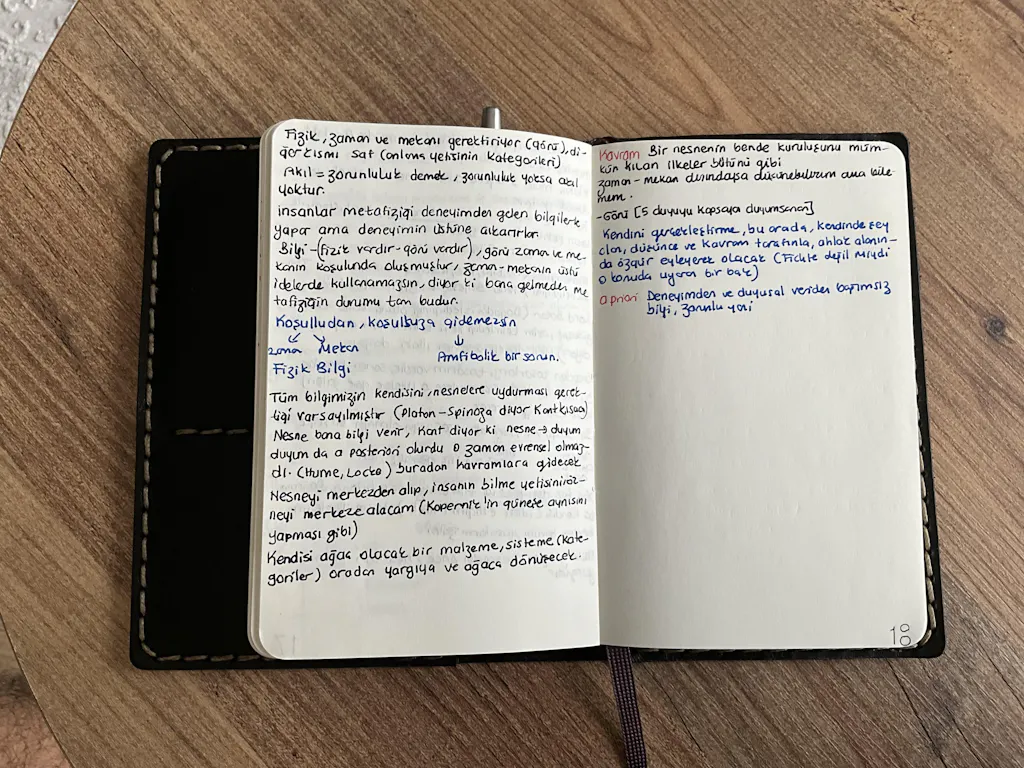 Fizik, zaman ve mekanı gerektiriyor (görü), di-
ğer kısmı saf (anlama yetisinin kategorileri)
Akıl = zorunluluk demek, zorunluluk yoksa akıl
yoktur.
insanlar metafiziği deneyimden gelen bilgilerle
yapar ama deneyimin üstüne çıkarırlar.
Bilgi - (fizik vardır - görü vardır), görü zaman ve me-
kanın koşulunda oluşmuştur, zaman-mekanın üstü
idelerde kullanamazsın, diyor ki bana gelmeden me
tafiziğin durumu tam budur.
Koşulludan, koşulsuza gidemezsin
zama Mekan
Amfibolik bir sorun.
Fizik Bilgi
Tüm bilgimizin kendisini, nesnelere uydurması gerek-
tiği varsayılmıştır (Platon-Spinoza diyor Kant kısaca)
Nesne bana bilgi verir, Kant diyor ki nesne → duyum
duyum da a posteriori olurdu o zaman evrensel olmaz-
dı. (Hume, Locke) buradan kavramlara gidecek
Nesneyi merkezden alıp, insanın bilme yetisini öz-
neyi merkeze alacam (Kopernik'in güneşe aynısını
yapması gibi)
Kendisi ağaç olacak bir malzeme, sisteme (kate-
goriler) oradan yargıya ve ağaca dönüşecek.
17
Kavram Bir nesnenin bende kuruluşunu müm-
kün kılan ilkeler bütünü gibi
zaman - mekan dışındaysa düşünebilirim ama bile-
mem.
- Görü [5 duyuyu kapsayan duyumsanan]
Kendini gerçekleştirme, bu arada, kendinde şey
olan, düşünce ve kavram tarafınla, ahlak alanın-
da özgür eyleyerek olacak (Fichte değil miydi
o konuda uyaran bir bak)
a priori Deneyimden ve duyusal veriden bağımsız
bilgi, zorunlu
18